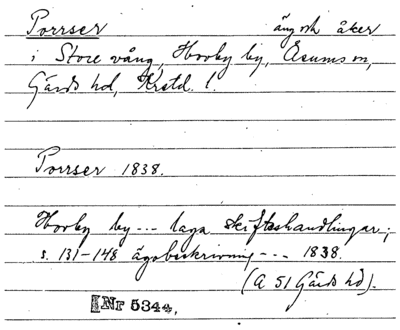 Porrser äng och åker
i Store vång, Horby by, Åsums sn,
Gärds hd, Krstd. l.
Porrser 1838.
Horby by --- laga skifteshandlingar;
s. 131-148 ägobeskrivning --- 1838.
(A 51 Gärds hd).
Nr 5344.